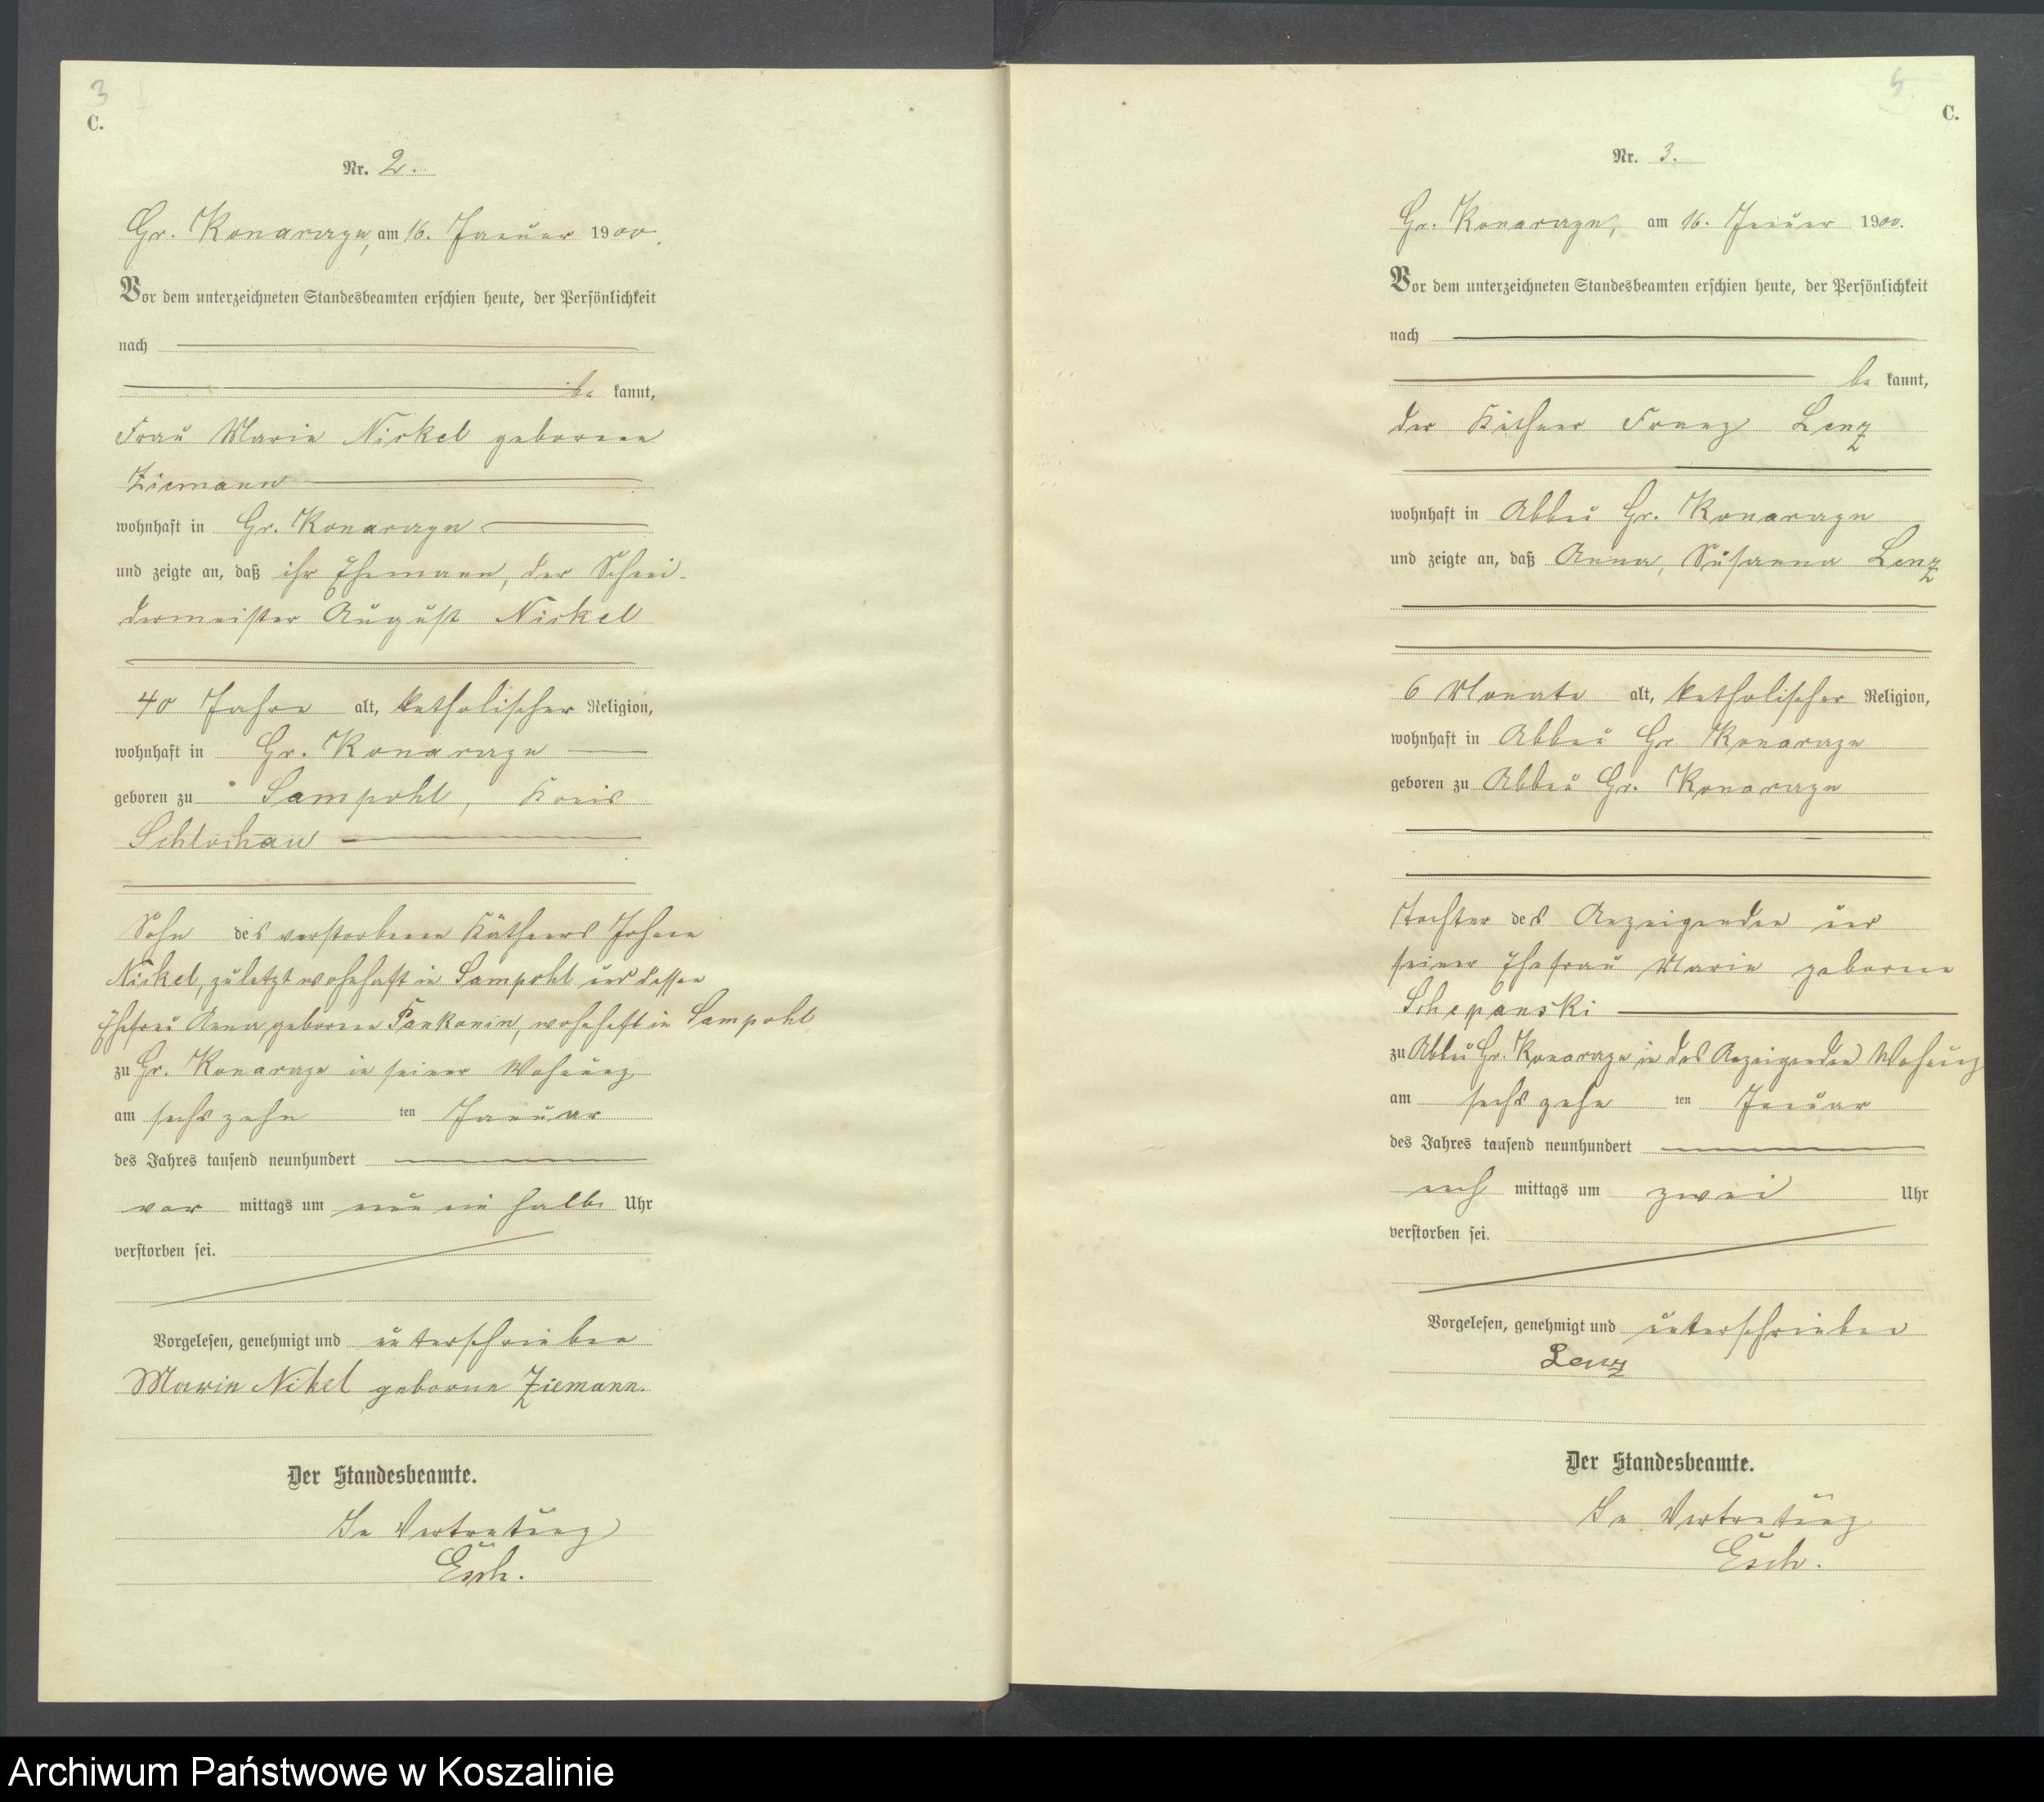 3
C.
Nr. 2.
Gr. Konarczyn, am 16. Januar 1900.
Vor dem unterzeichneten Standesbeamten erschien heute, der Persönlichkeit
nach
be kannt,
Frau Marie Nickel geborene
Ziemann
wohnhaft in Gr. Konarczyn
und zeigte an, daß ihr Ehemann, der Schnei-
dermeister August Nickel
40 Jahre alt, katholischer Religion,
wohnhaft in Gr. Konarczyn
geboren zu Sampohl, Kreis
Schlochau
Sohn des verstorbenen Käthners Johann
Nickel, zuletzt wohnhaft in Sampohl und dessen
Ehefrau Anna, geborene Pankonin, wohnhaft in Sampohl
zu Gr. Konarczyn in seiner Wohnung
am sechszehn ten Januar
des Jahres tausend neunhundert
vor mittags um neun ein halb Uhr
verstorben sei.
Vorgelesen, genehmigt und unterschrieben
Marie Nikel geborne Ziemann.
Der Standesbeamte.
In Vertretung
Esch.
5
C.
Nr. 3.
Gr. Konarczyn, am 16. Januar 1900.
Vor dem unterzeichneten Standesbeamten erschien heute, der Persönlichkeit
nach
be kannt,
der Käthner Franz Lenz
wohnhaft in Abbau Gr. Konarczyn
und zeigte an, daß Anna, Susanna Lenz
6 Monate alt, katholischer Religion,
wohnhaft in Abbau Gr Konarczyn
geboren zu Abbau Gr. Konarczyn
Tochter des Anzeigenden und
seiner Ehefrau Marie geborene
Schepanski
zu Abbau Gr. Konarczyn in des Anzeigenden Wohnung
am sechszehn ten Januar
des Jahres tausend neunhundert
nach mittags um zwei Uhr
verstorben sei.
Vorgelesen, genehmigt und unterschrieben
Lenz
Der Standesbeamte.
In Vertretung
Esch.
Archiwum Państwowe w Koszalinie